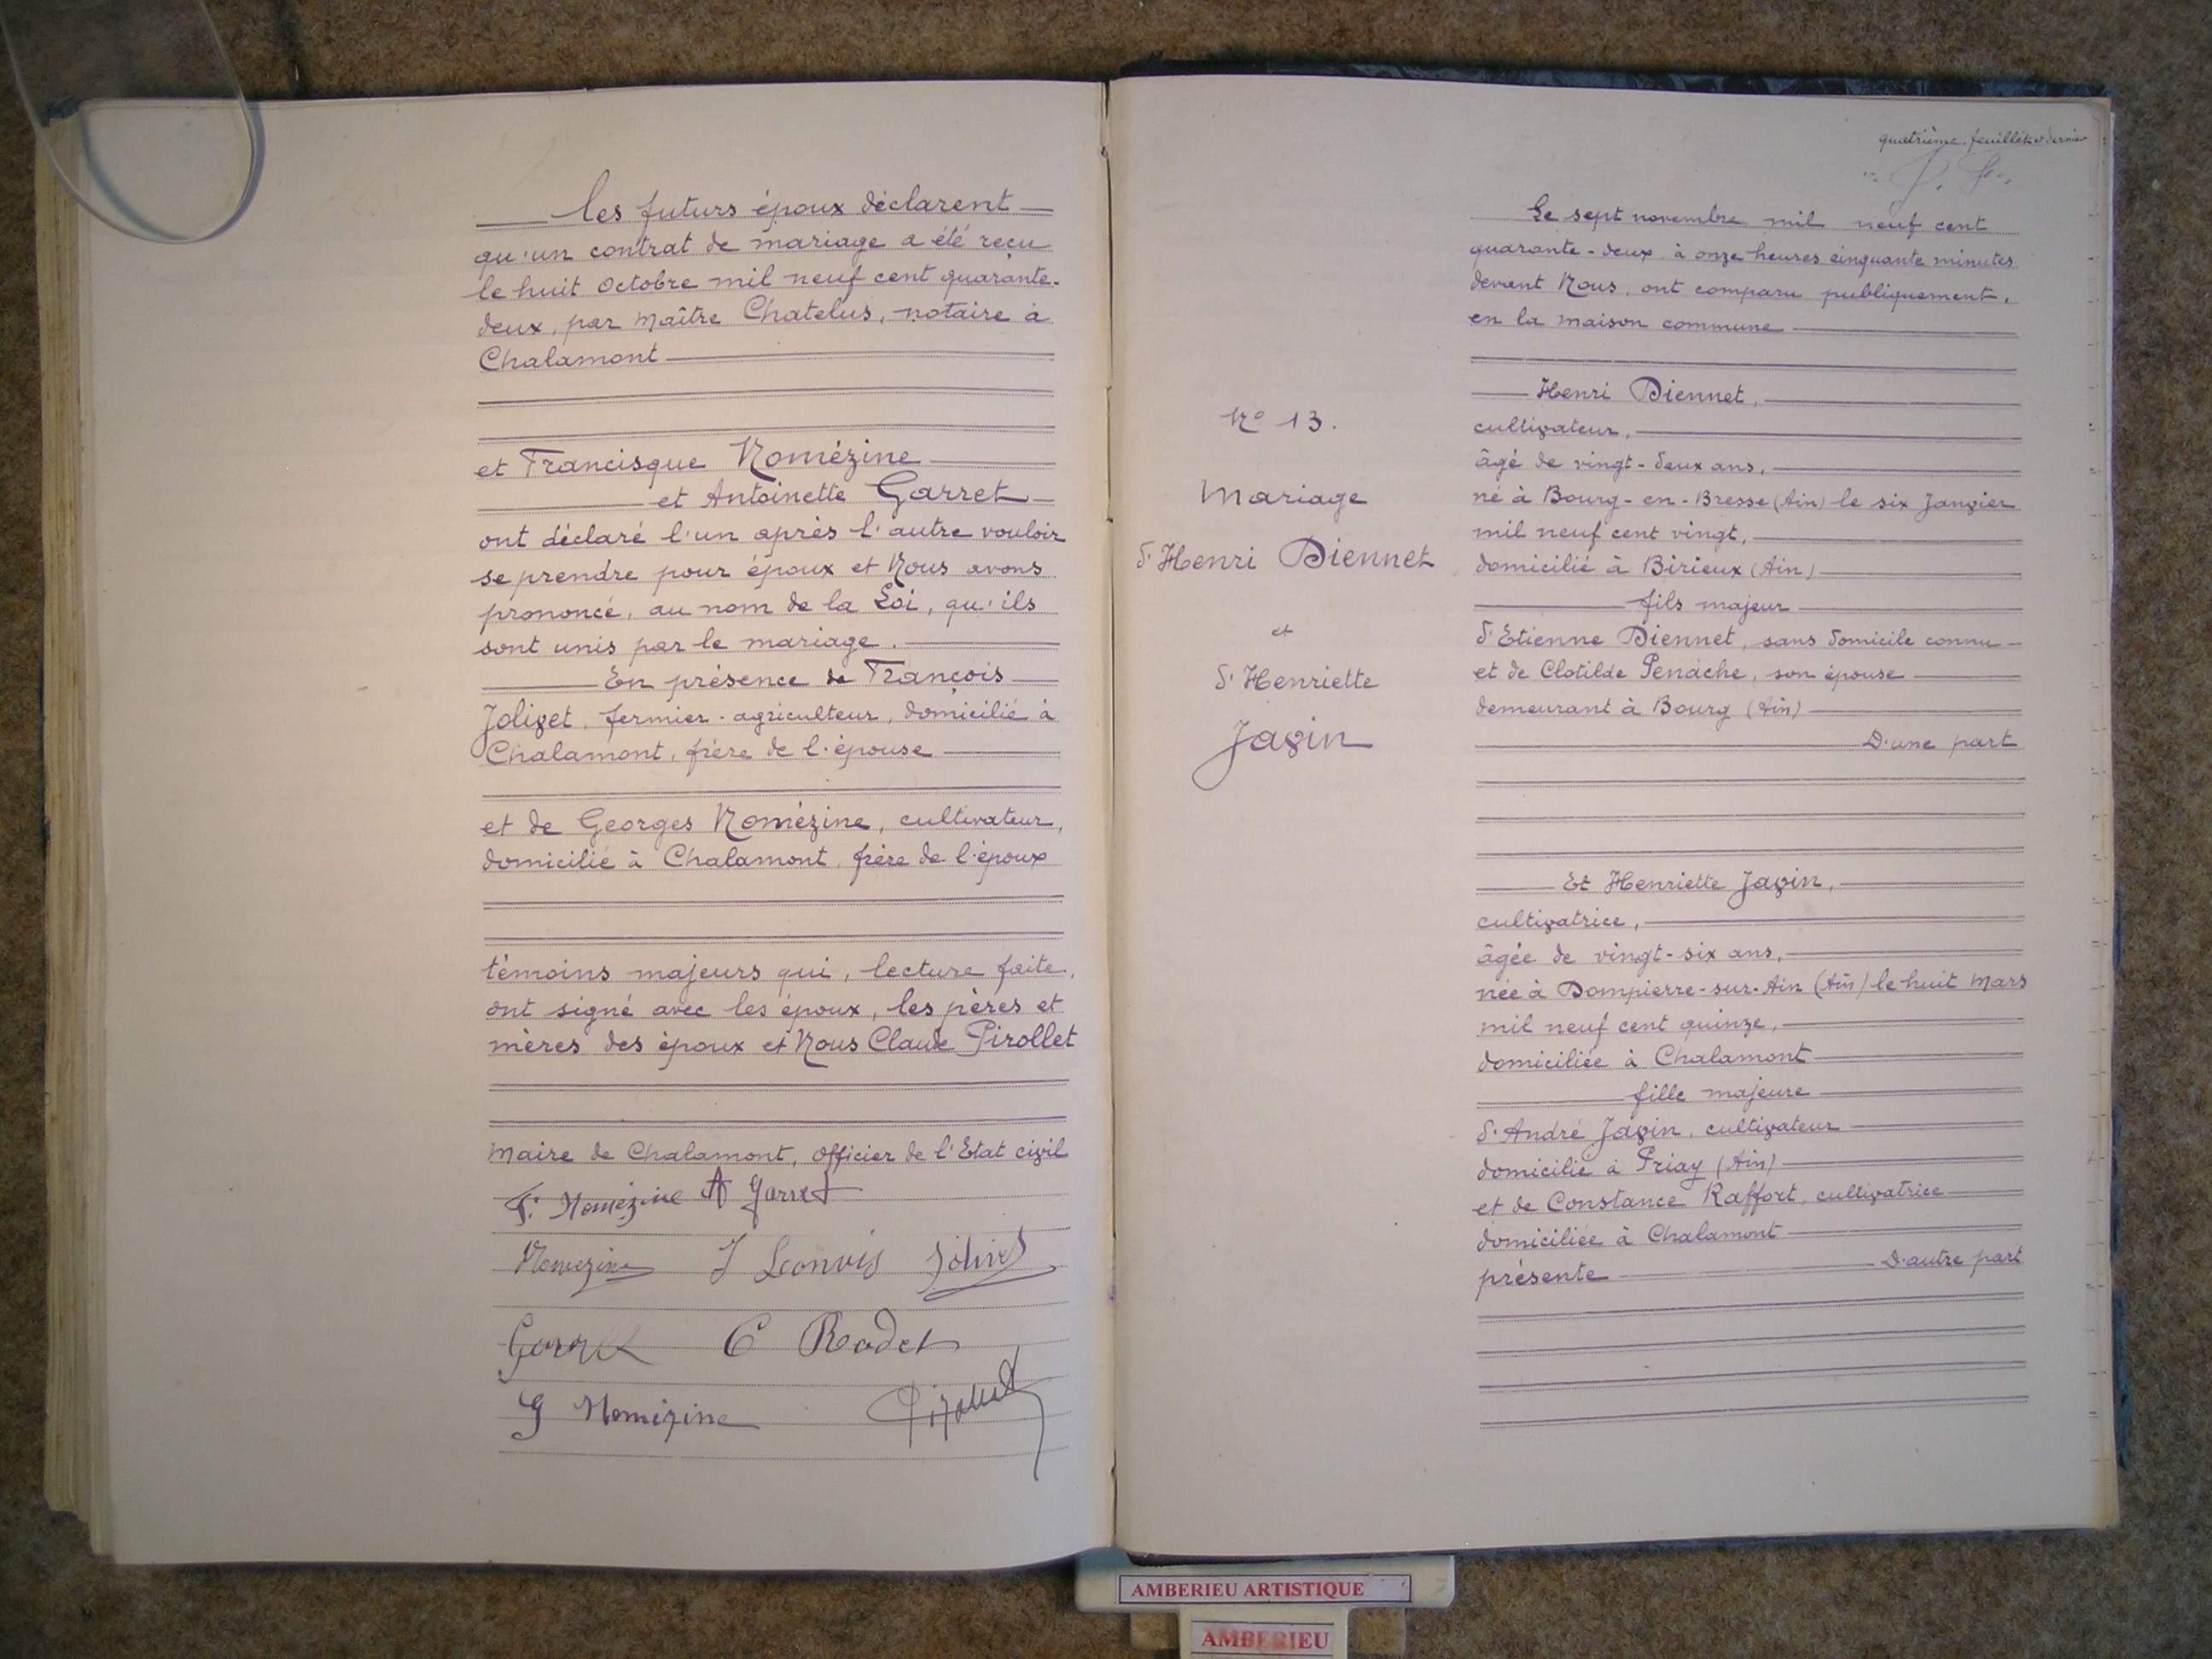 les futurs époux déclarent
qu'un contrat de mariage a été reçu
le huit Octobre mil neuf cent quarante-
deux, par Maître Chatelus, notaire à
Chalamont
et Francisque Nomézine
et Antoinette Garret
ont déclaré l'un après l'autre vouloir
se prendre pour époux et Nous avons
prononcé, au nom de la Loi, qu'ils
sont unis par le mariage.
En présence de François
Jolivet, fermier-agriculteur, domicilié à
Chalamont, frère de l'épouse
et de Georges Nomézine, cultivateur,
domicilié à Chalamont, frère de l'époux
témoins majeurs qui, lecture faite,
ont signé avec les époux, les pères et
mères des époux et Nous Claude Pirollet
Maire de Chalamont, Officier de l'Etat civil
F. Nomézine A Garret
Nomézine J Jolivet
Garret C Rodet
G Nomézine Pirollet
quatrième feuillet et dernier
Le sept novembre mil neuf cent
quarante-deux à onze heures cinquante minutes
devant Nous, ont comparu publiquement,
en la maison commune
Henri Diennet,
cultivateur,
âgé de vingt-deux ans,
né à Bourg-en-Bresse (Ain) le six Janvier
mil neuf cent vingt,
domicilié à Birieux (Ain)
fils majeur
d'Etienne Diennet, sans domicile connu
et de Clotilde Penache, son épouse
demeurant à Bourg (Ain)
D'une part
N° 13.
Mariage
d'Henri Diennet
et
d'Henriette
Javin
Et Henriette Javin,
cultivatrice,
âgée de vingt-six ans,
née à Dompierre-sur-Ain (Ain) le huit Mars
mil neuf cent quinze,
domiciliée à Chalamont
fille majeure
d'André Javin, cultivateur
domicilié à Priay (Ain)
et de Constance Raffort, cultivatrice
domiciliée à Chalamont
présente D'autre part
AMBERIEU ARTISTIQUE
AMBERIEU